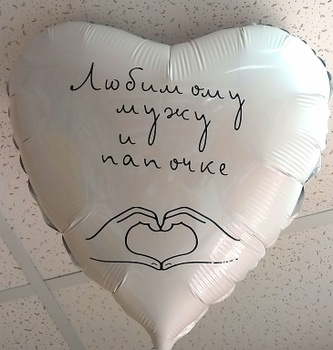 Любимому
мужу
и
папочке